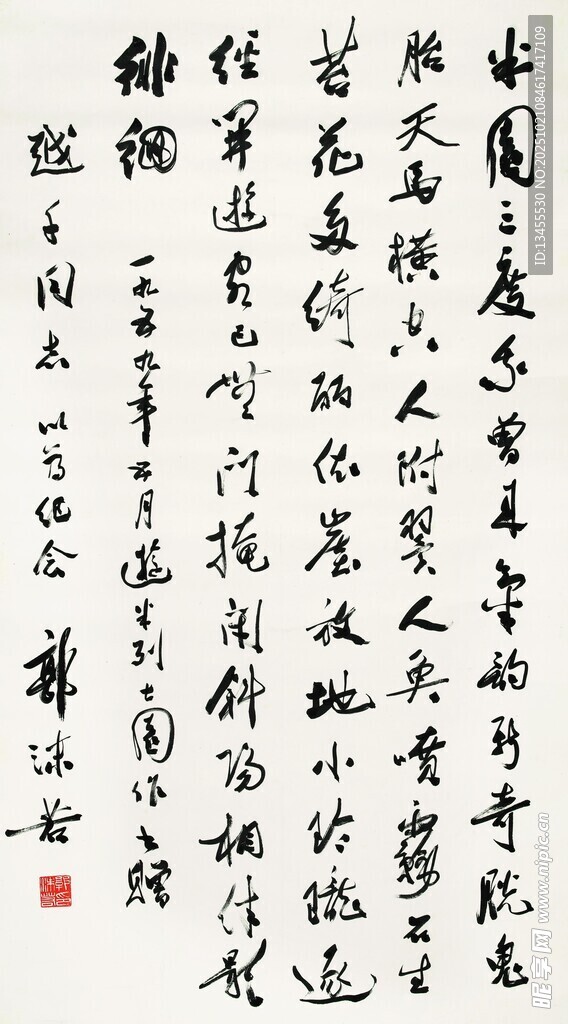 米園三度我曾来氣韵新奇脱鬼
胎天馬横空人附翼人魚噴霧石生
苔花多綺丽依崖放地小玲瓏逐
徑開遊客已無門掩闭斜阳相伴影
徘徊 一九五九年五月遊米列士園作書贈
越千同志以为纪念 郭沫若
郭沫若
ID:13455530 NO:20251021084617417109
昵享网 www.nipic.cn